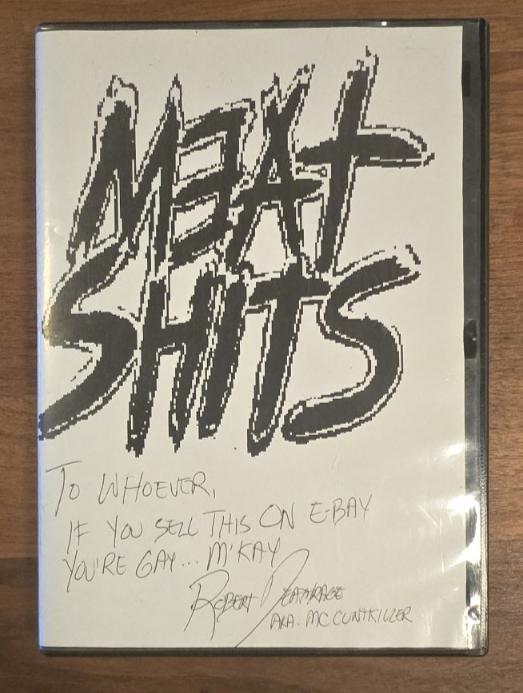 MEAT
SHITS
TO WHOEVER,
IF YOU SELL THIS ON E-BAY
YOU'RE GAY... M'KAY
ROBERT DEATHRAGE
AKA. MC CUNTKILLER